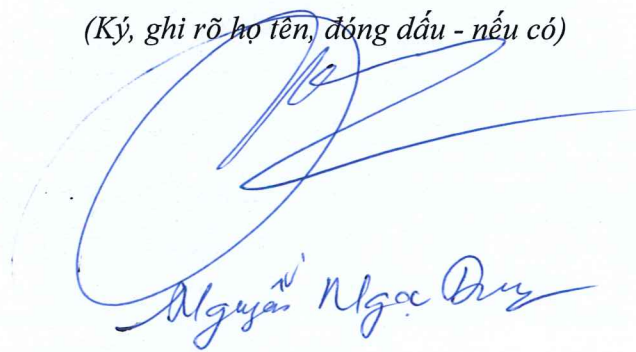 (Ký, ghi rõ họ tên, đóng dấu - nếu có)
Nguyễn Ngọc Duy